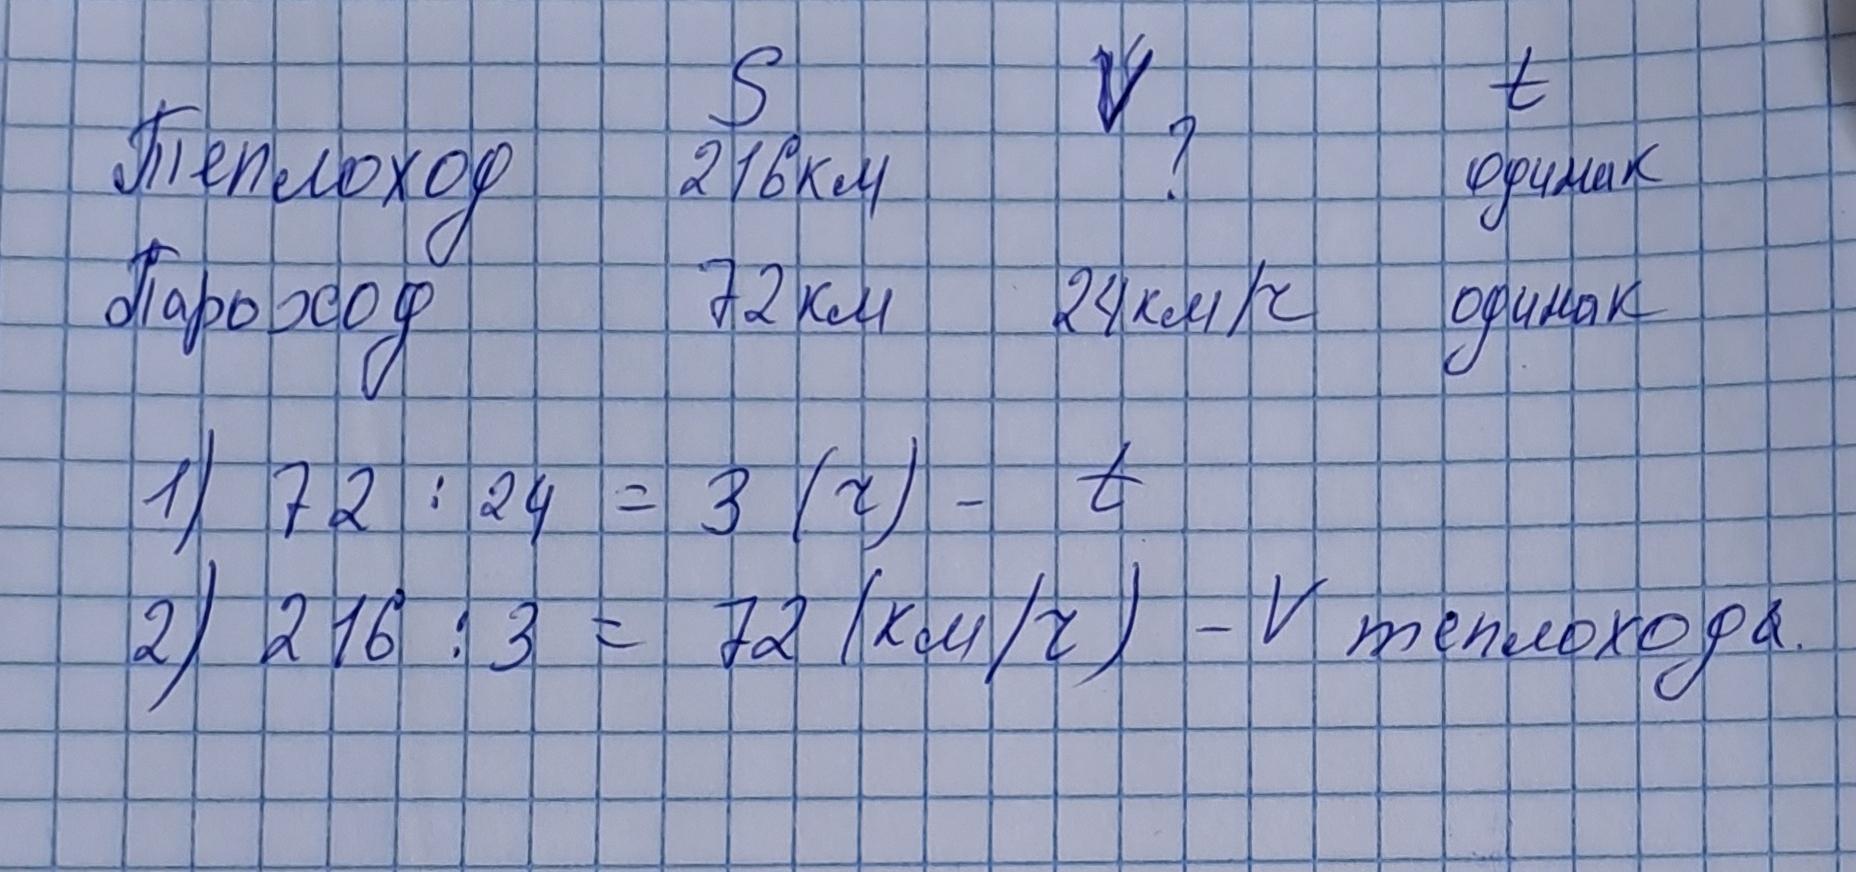 S V t
Теплоход 216км ? одинак
Пароход 72км 24км/ч одинак
1) 72 : 24 = 3 (ч) - t
2) 216 : 3 = 72 (км/ч) - V теплохода.